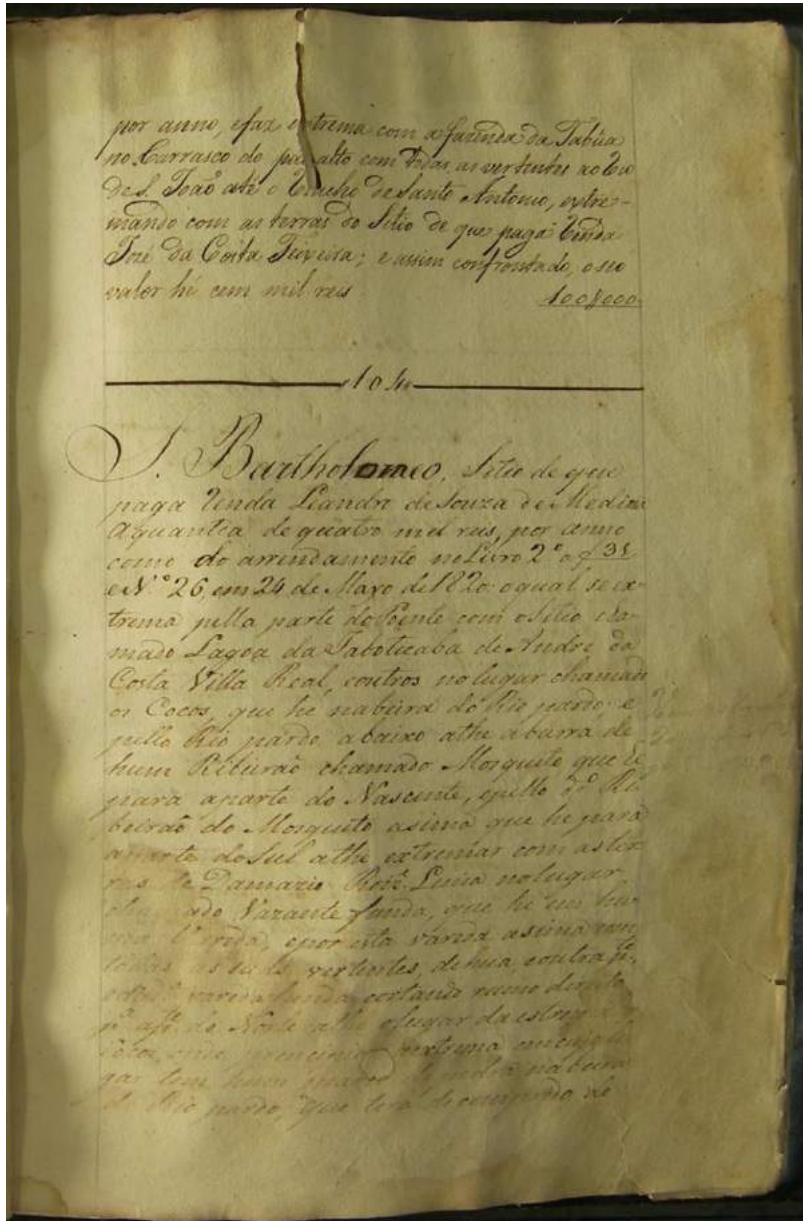 por anno, e faz extrema com a fazenda da Tabûa
no Carrasco do pao alto com todas as vertentes ao Rio
de S. João até o Riacho de Santo Antonio, extre-
mando com as terras do Sitio de que paga Renda
José da Costa Teixeira; e assim confrontado, o seo
valor hé cem mil reis 100$000
S. Bartholomeo, Sitio de que
paga Renda Leandro de Souza de Medina
a quantia de quatro mil reis, por anno
como do arrendamento no Livro 2º a f 38
e Nº 26, em 24 de Março de 1820: o qual se ex-
trema pella parte do Poente com o Sitio cha-
mado Lagoa da Jaboticaba de Andre da
Costa Villa Real, e outros no lugar chamado
os Cocos, que he na beira do Rio pardo; e
pello Rio pardo abaixo athe a barra de
hum Ribeirão chamado Mosquito que he
para aparte do Nascente, e pello dº Ri-
beirão do Mosquito asima que he para
aparte do Sul athe extremar com as ter-
ras de Damazio no lugar
chamado Varante funda, que he em hu-
ma e por esta asima com
todas as suas vertentes, de hua e outra pe,
cortando rumo direito
pª apte do Norte athe o lugar da estrema
Cocos, onde extrema
gar tem hum marco de pedra na beira
do Rio pardo, que terá de comprido de